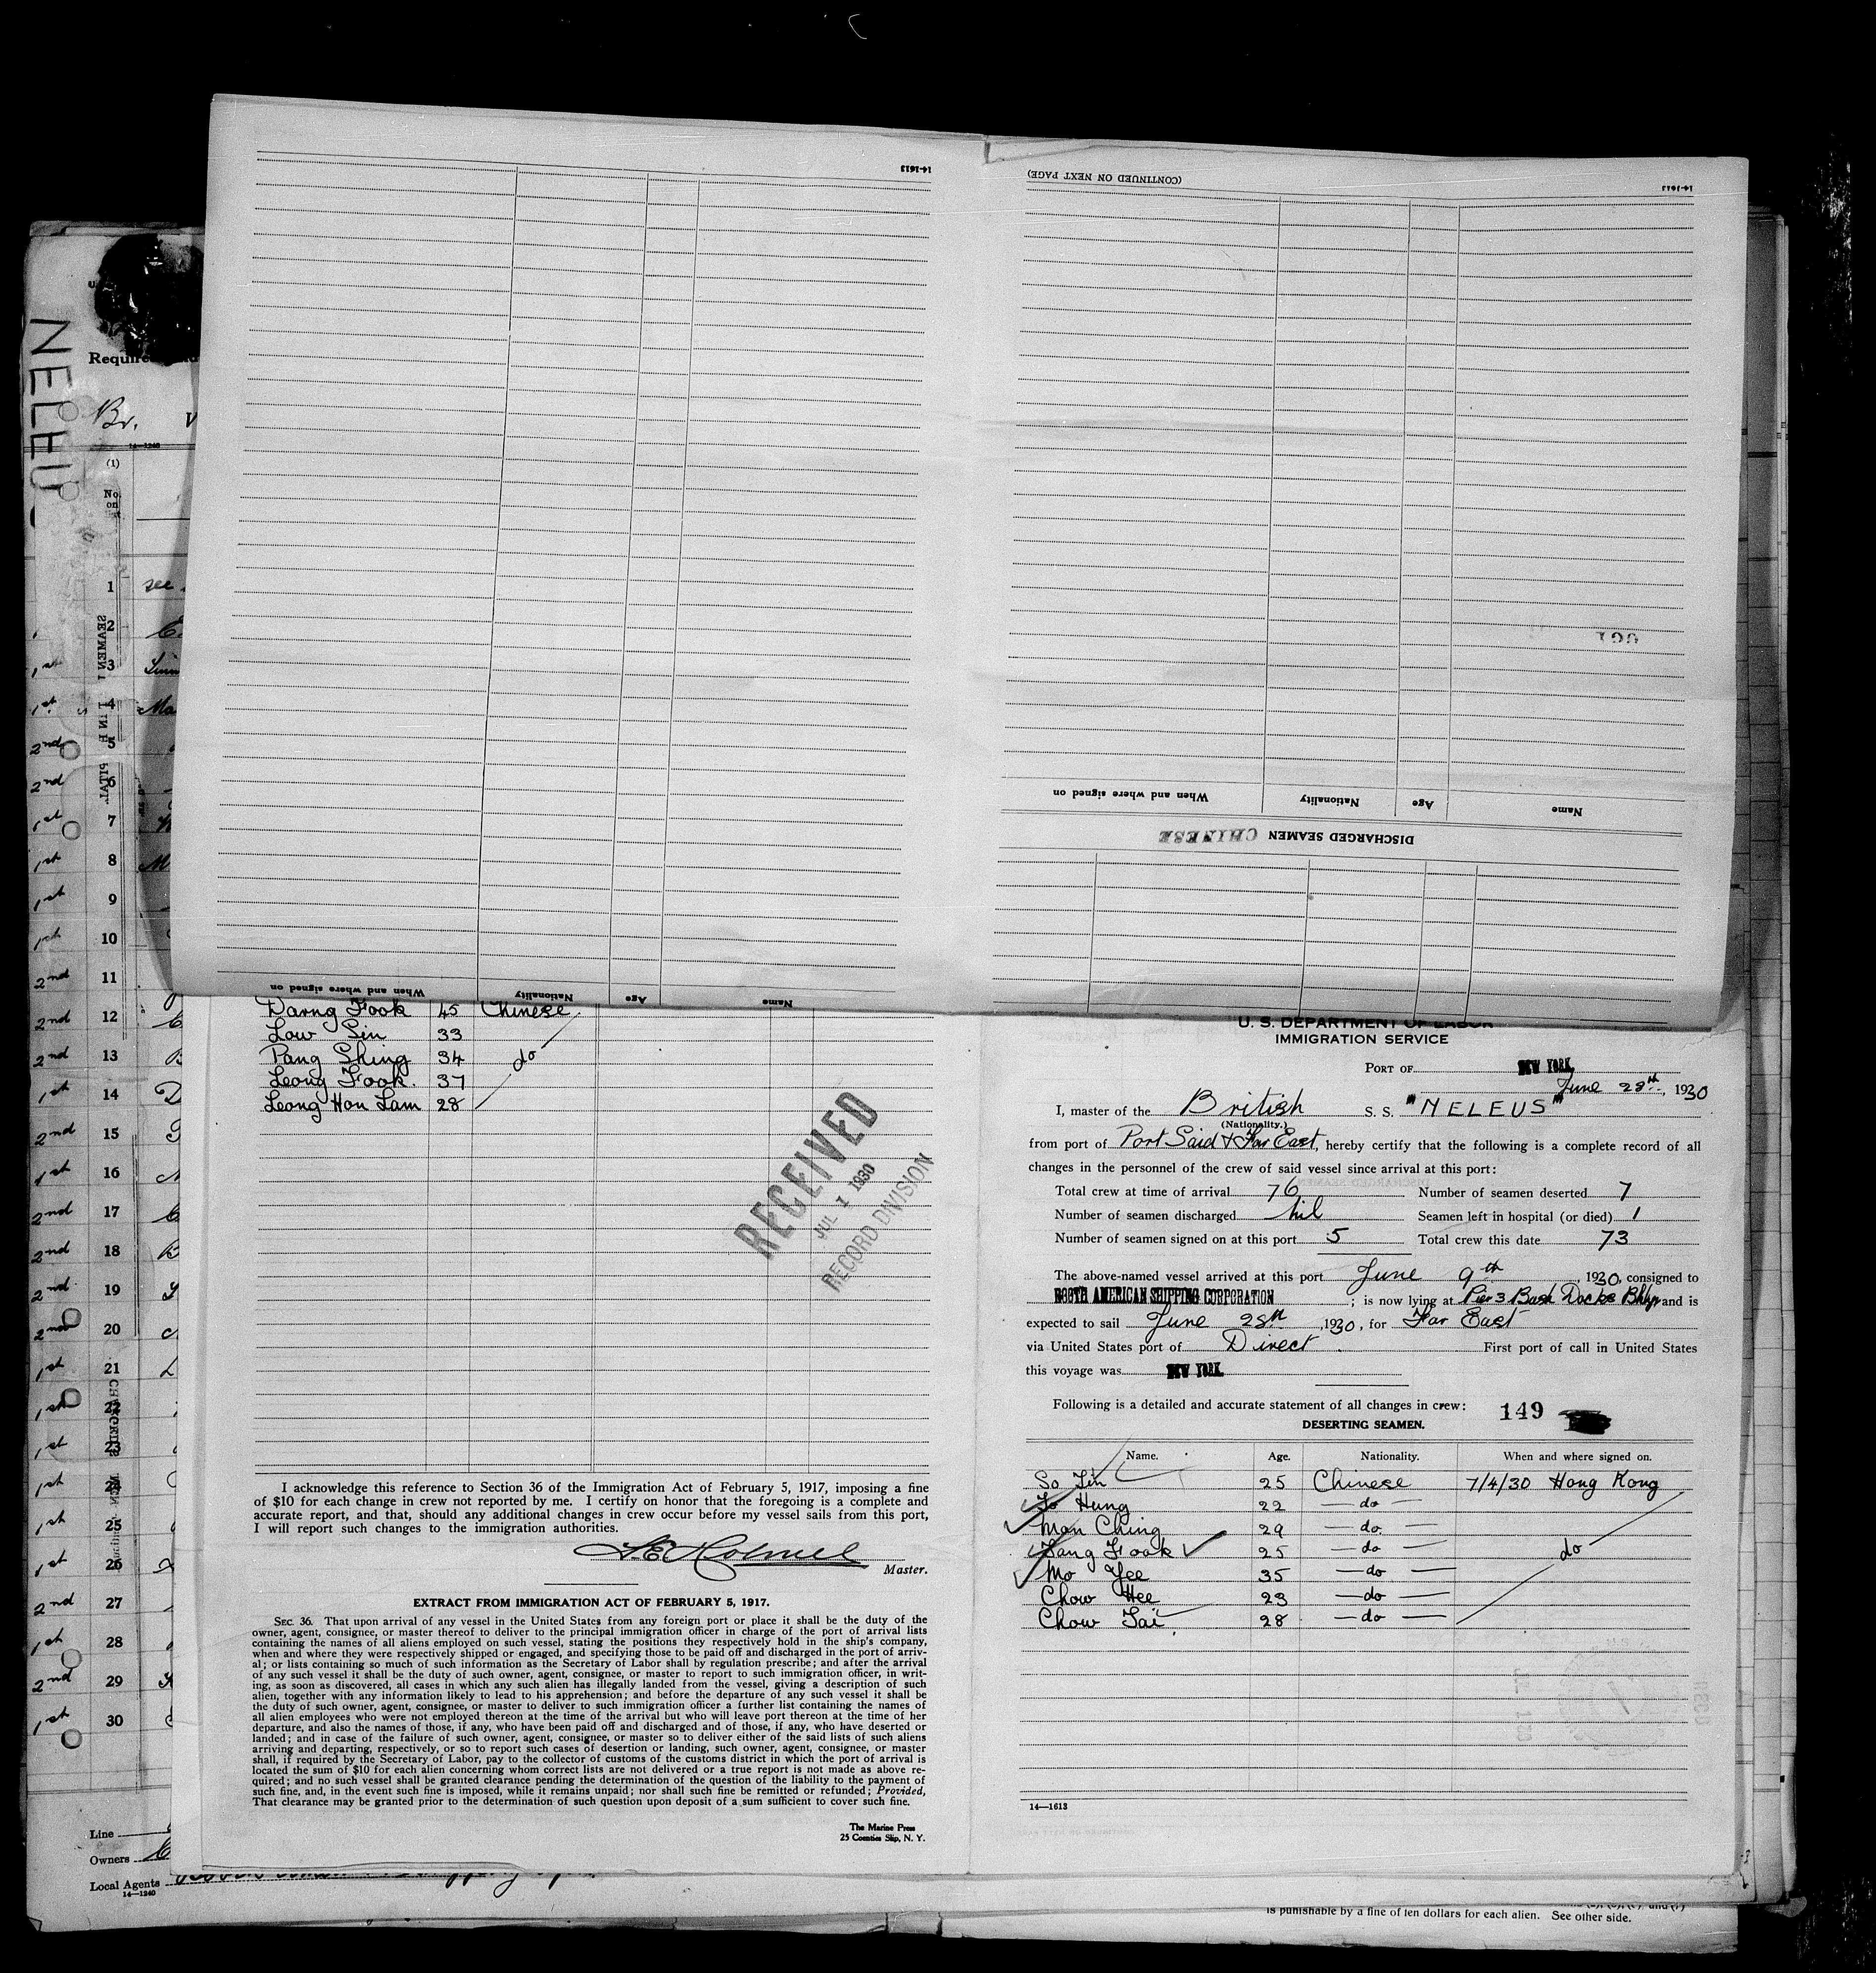 14-1613
(CONTINUED ON NEXT PAGE)
14-1613
When and where signed on
Nationality
Age
Name
DISCHARGED SEAMEN CHINESE
When and where signed on
Nationality
Age
Name
NELEU
Br.
14-1240
(1)
No.
on
1 see
2
1st 3
1st 4 Ma
2nd 5
2nd 6
1st 7
1st 8 M
1st 9
1st 10
2nd 11
2nd 12
2nd 13
1st 14
2nd 15
1st 16
2nd 17
2nd 18
2nd 19
2nd 20
1st 21
1st 22
1st 23
1st 24
1st 25
1st 26
2nd 27
1st 28
2nd 29
1st 30
Line
Owners
Local Agents
14-1240
Darng Fook 45 Chinese
Low Sin 33
Pang Shing 34 do
Leong Fook. 37
Leong Hon Lam 28
RECEIVED
JUL 1 1930
RECORD DIVISION
I acknowledge this reference to Section 36 of the Immigration Act of February 5, 1917, imposing a fine
of $10 for each change in crew not reported by me. I certify on honor that the foregoing is a complete and
accurate report, and that, should any additional changes in crew occur before my vessel sails from this port,
I will report such changes to the immigration authorities.
Master.
EXTRACT FROM IMMIGRATION ACT OF FEBRUARY 5, 1917.
SEC. 36. That upon arrival of any vessel in the United States from any foreign port or place it shall be the duty of the
owner, agent, consignee, or master thereof to deliver to the principal immigration officer in charge of the port of arrival lists
containing the names of all aliens employed on such vessel, stating the positions they respectively hold in the ship's company,
when and where they were respectively shipped or engaged, and specifying those to be paid off and discharged in the port of arriv-
al; or lists containing so much of such information as the Secretary of Labor shall by regulation prescribe; and after the arrival
of any such vessel it shall be the duty of such owner, agent, consignee, or master to report to such immigration officer, in writ-
ing, as soon as discovered, all cases in which any such alien has illegally landed from the vessel, giving a description of such
alien, together with any information likely to lead to his apprehension; and before the departure of any such vessel it shall be
the duty of such owner, agent, consignee, or master to deliver to such immigration officer a further list containing the names of
all alien employees who were not employed thereon at the time of the arrival but who will leave port thereon at the time of her
departure, and also the names of those, if any, who have been paid off and discharged and of those, if any, who have deserted or
landed; and in case of the failure of such owner, agent, consignee, or master so to deliver either of the said lists of such aliens
arriving and departing, respectively, or so to report such cases of desertion or landing, such owner, agent, consignee, or master
shall, if required by the Secretary of Labor, pay to the collector of customs of the customs district in which the port of arrival is
located the sum of $10 for each alien concerning whom correct lists are not delivered or a true report is not made as above re-
quired; and no such vessel shall be granted clearance pending the determination of the question of the liability to the payment of
such fine, and, in the event such fine is imposed, while it remains unpaid; nor shall such fine be remitted or refunded; Provided,
That clearance may be granted prior to the determination of such question upon deposit of a sum sufficient to cover such fine.
The Marine Press
25 Coenties Slip, N. Y.
U. S. DEPARTMENT OF LABOR
IMMIGRATION SERVICE
PORT OF NEW YORK,
June 28th, 1930
I, master of the British S. S. "NELEUS"
(Nationality.)
from port of Port Said & Far East, hereby certify that the following is a complete record of all
changes in the personnel of the crew of said vessel since arrival at this port:
Total crew at time of arrival 76 Number of seamen deserted 7
Number of seamen discharged nil Seamen left in hospital (or died) 1
Number of seamen signed on at this port 5 Total crew this date 73
The above-named vessel arrived at this port June 9th, 1930, consigned to
BOOTH AMERICAN SHIPPING CORPORATION; is now lying at Pier 3 Bush Docks Bklyn and is
expected to sail June 28th, 1930, for Far East
via United States port of Direct. First port of call in United States
this voyage was NEW YORK.
Following is a detailed and accurate statement of all changes in crew: 149
DESERTING SEAMEN.
Name. Age. Nationality. When and where signed on.
So Jin 25 Chinese 7/4/30 Hong Kong
Hung 22 — do —
Man Ching 29 — do. —
Fang Fook 25 — do — do
Mo Yee 35 — do —
Chow Hee 23 — do —
Chow Tai 28 — do —
14—1613
is punishable by a fine of ten dollars for each alien. See other side.